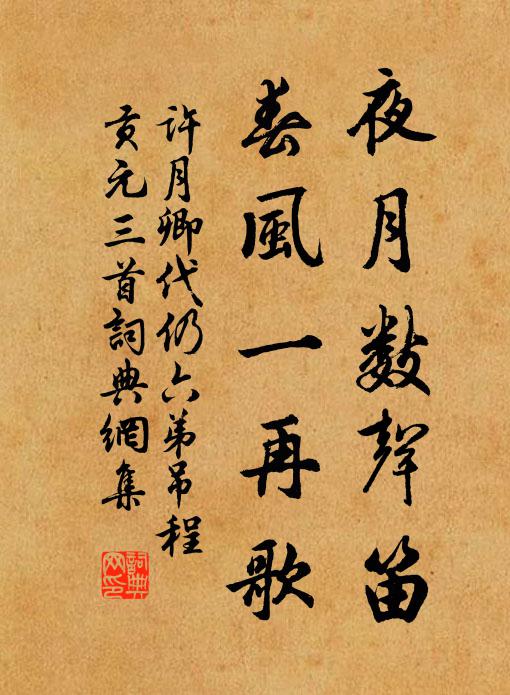 夜月數聲笛
春風一再歌
許月卿代仍六弟吊程
貢元三首詞典網集
詞典
网印